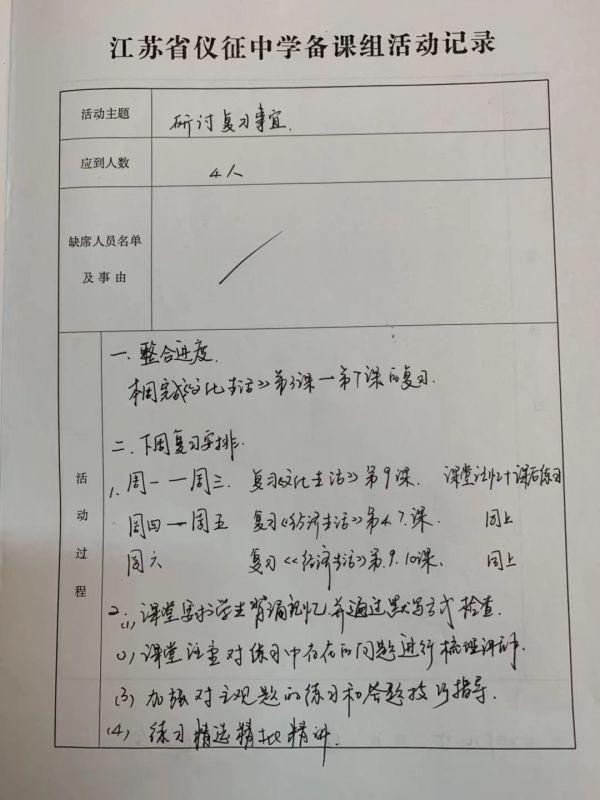 江苏省仪征中学备课组活动记录
活动主题 研讨复习事宜.
应到人数 4人
缺席人员名单
及事由
活动过程
一、整合进度.
本周完成《文化生活》第3课一第7课的复习.
二、下周复习安排.
1、周一一周三. 复习《文化生活》第9课. 课堂识记+课后练习
周四一周五 复习《经济生活》第4.7.课. 同上
周六 复习《经济生活》第.9.10课. 同上
2、(1)、课堂要求学生背诵记忆并通过默写方式检查.
(2)、课堂注重对练习中存在的问题进行梳理讲评.
(3) 加强对主观题的练习和答题技巧指导.
(4)、练习精选精批精讲.